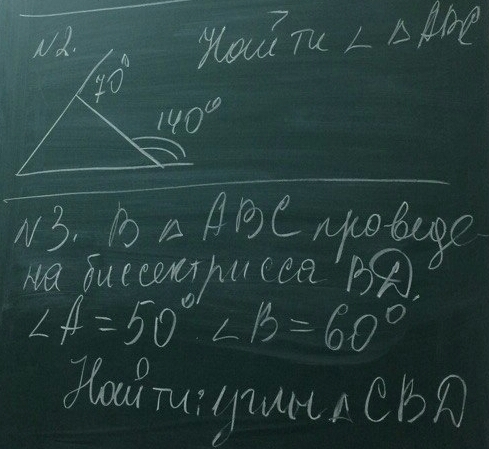 №2. Найти ∠ △ ABC
70°
140°
№3. В △ ABC проведе-
на биссектрисса BD.
∠A = 50° ∠B = 60°
Найти: углы △ CBD